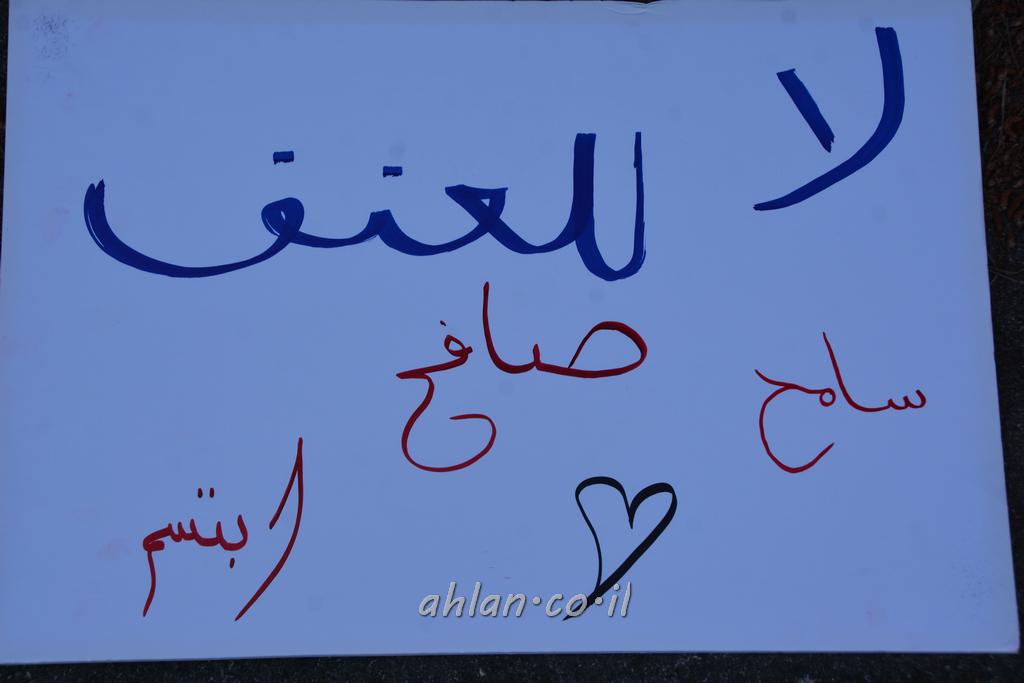 لا للعنف
سامح صافح
ابتسم
ahlan.co.il